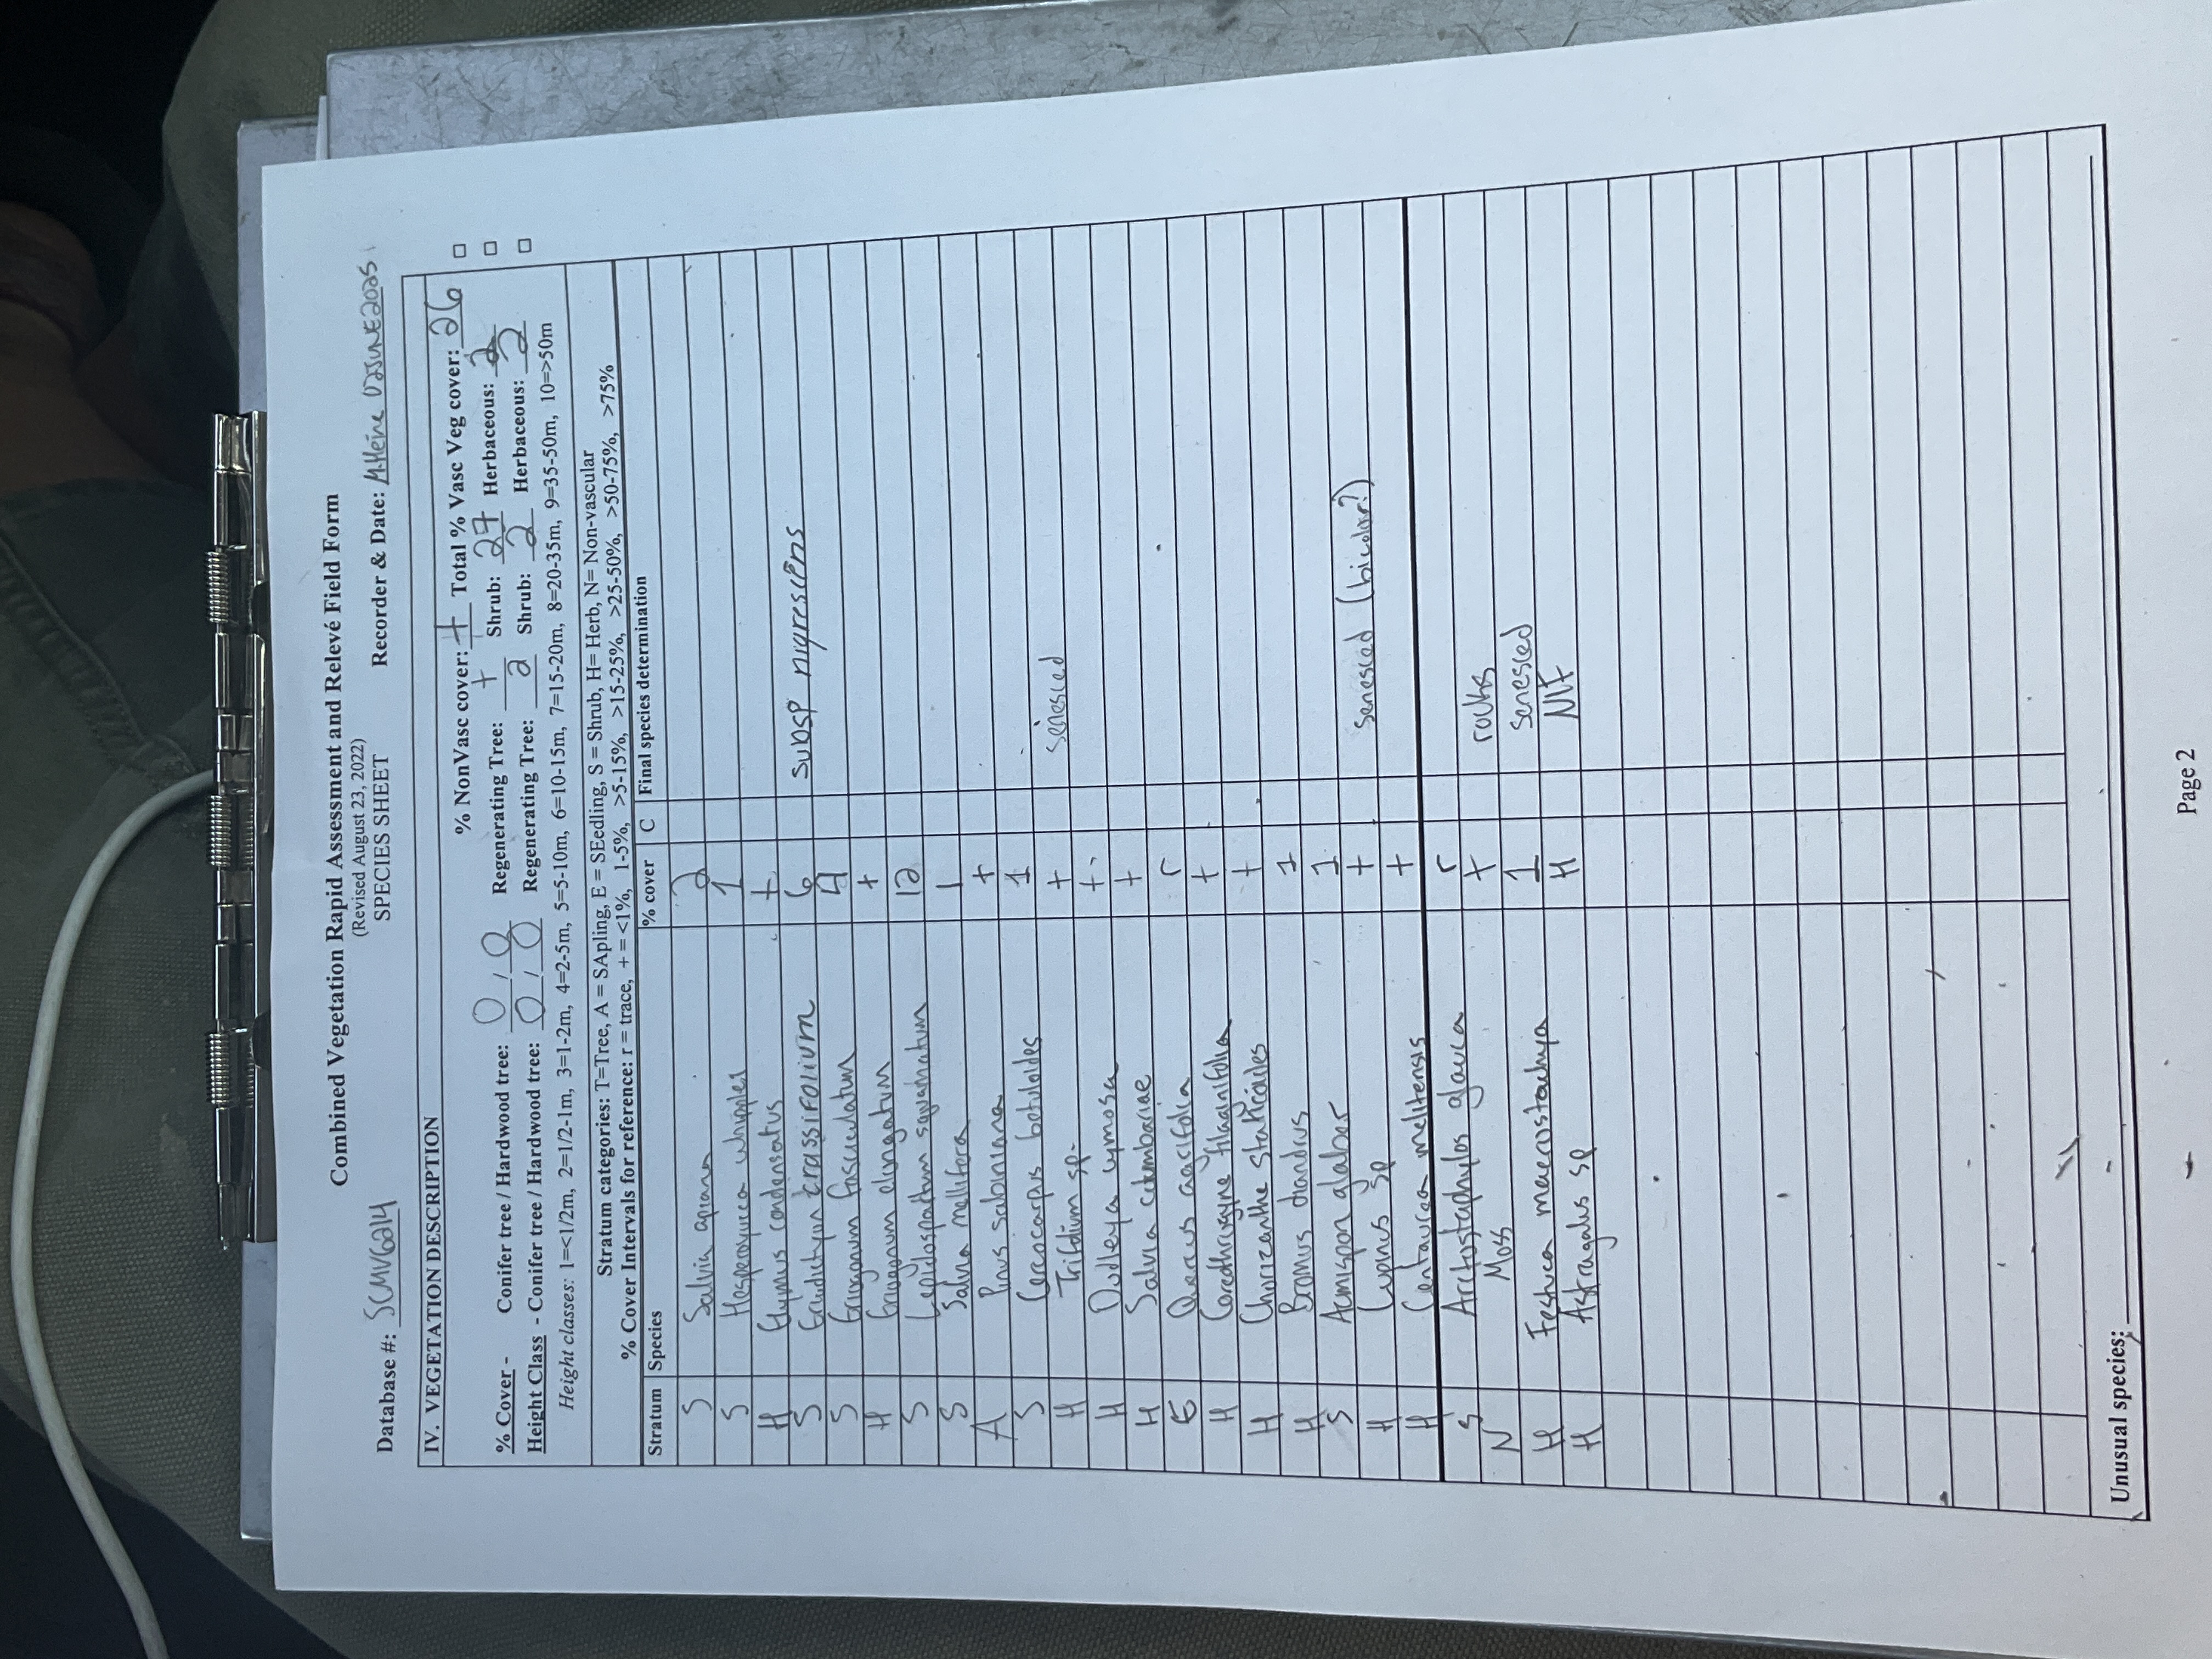 Combined Vegetation Rapid Assessment and Relevé Field Form
(Revised August 23, 2022)
SPECIES SHEET
Database #: SCMV6214 Recorder & Date: M.Heine 02JUNE2025
IV. VEGETATION DESCRIPTION
% NonVasc cover: + Total % Vasc Veg cover: 26
% Cover - Conifer tree / Hardwood tree: 0 / 0 Regenerating Tree: + Shrub: 27 Herbaceous: 2
Height Class - Conifer tree / Hardwood tree: 0 / 0 Regenerating Tree: 2 Shrub: 2 Herbaceous: 2
Height classes: 1=<1/2m, 2=1/2-1m, 3=1-2m, 4=2-5m, 5=5-10m, 6=10-15m, 7=15-20m, 8=20-35m, 9=35-50m, 10=>50m
Stratum categories: T=Tree, A = SApling, E = SEedling, S = Shrub, H= Herb, N= Non-vascular
% Cover Intervals for reference: r = trace, + = <1%, 1-5%, >5-15%, >15-25%, >25-50%, >50-75%, >75%
Stratum Species % cover C Final species determination
S Salvia apiana 2
S Hesperoyucca whipplei 1
H Elymus condensatus +
S Eriodictyon crassifolium 6 subsp nigrescens
S Eriogonum fasciculatum 4
H Eriogonum elongatum +
S Lepidospartum squamatum 12
S Salvia mellifera 1
A Pinus sabiniana +
S Cercocarpus betuloides 1
H Trifolium sp. + senesced
H Dudleya cymosa +
H Salvia columbariae +
E Quercus agrifolia r
H Corethrogyne filaginifolia +
H Chorizanthe staticoides +
H Bromus diandrus 1
S Acmispon glaber 1
H Lupinus sp + senesced (bicolor?)
H Centaurea melitensis +
S Arctostaphylos glauca r
N Moss + rocks
H Festuca macrostachya 1 senesced
H Astragalus sp H NNF
Unusual species:
Page 2